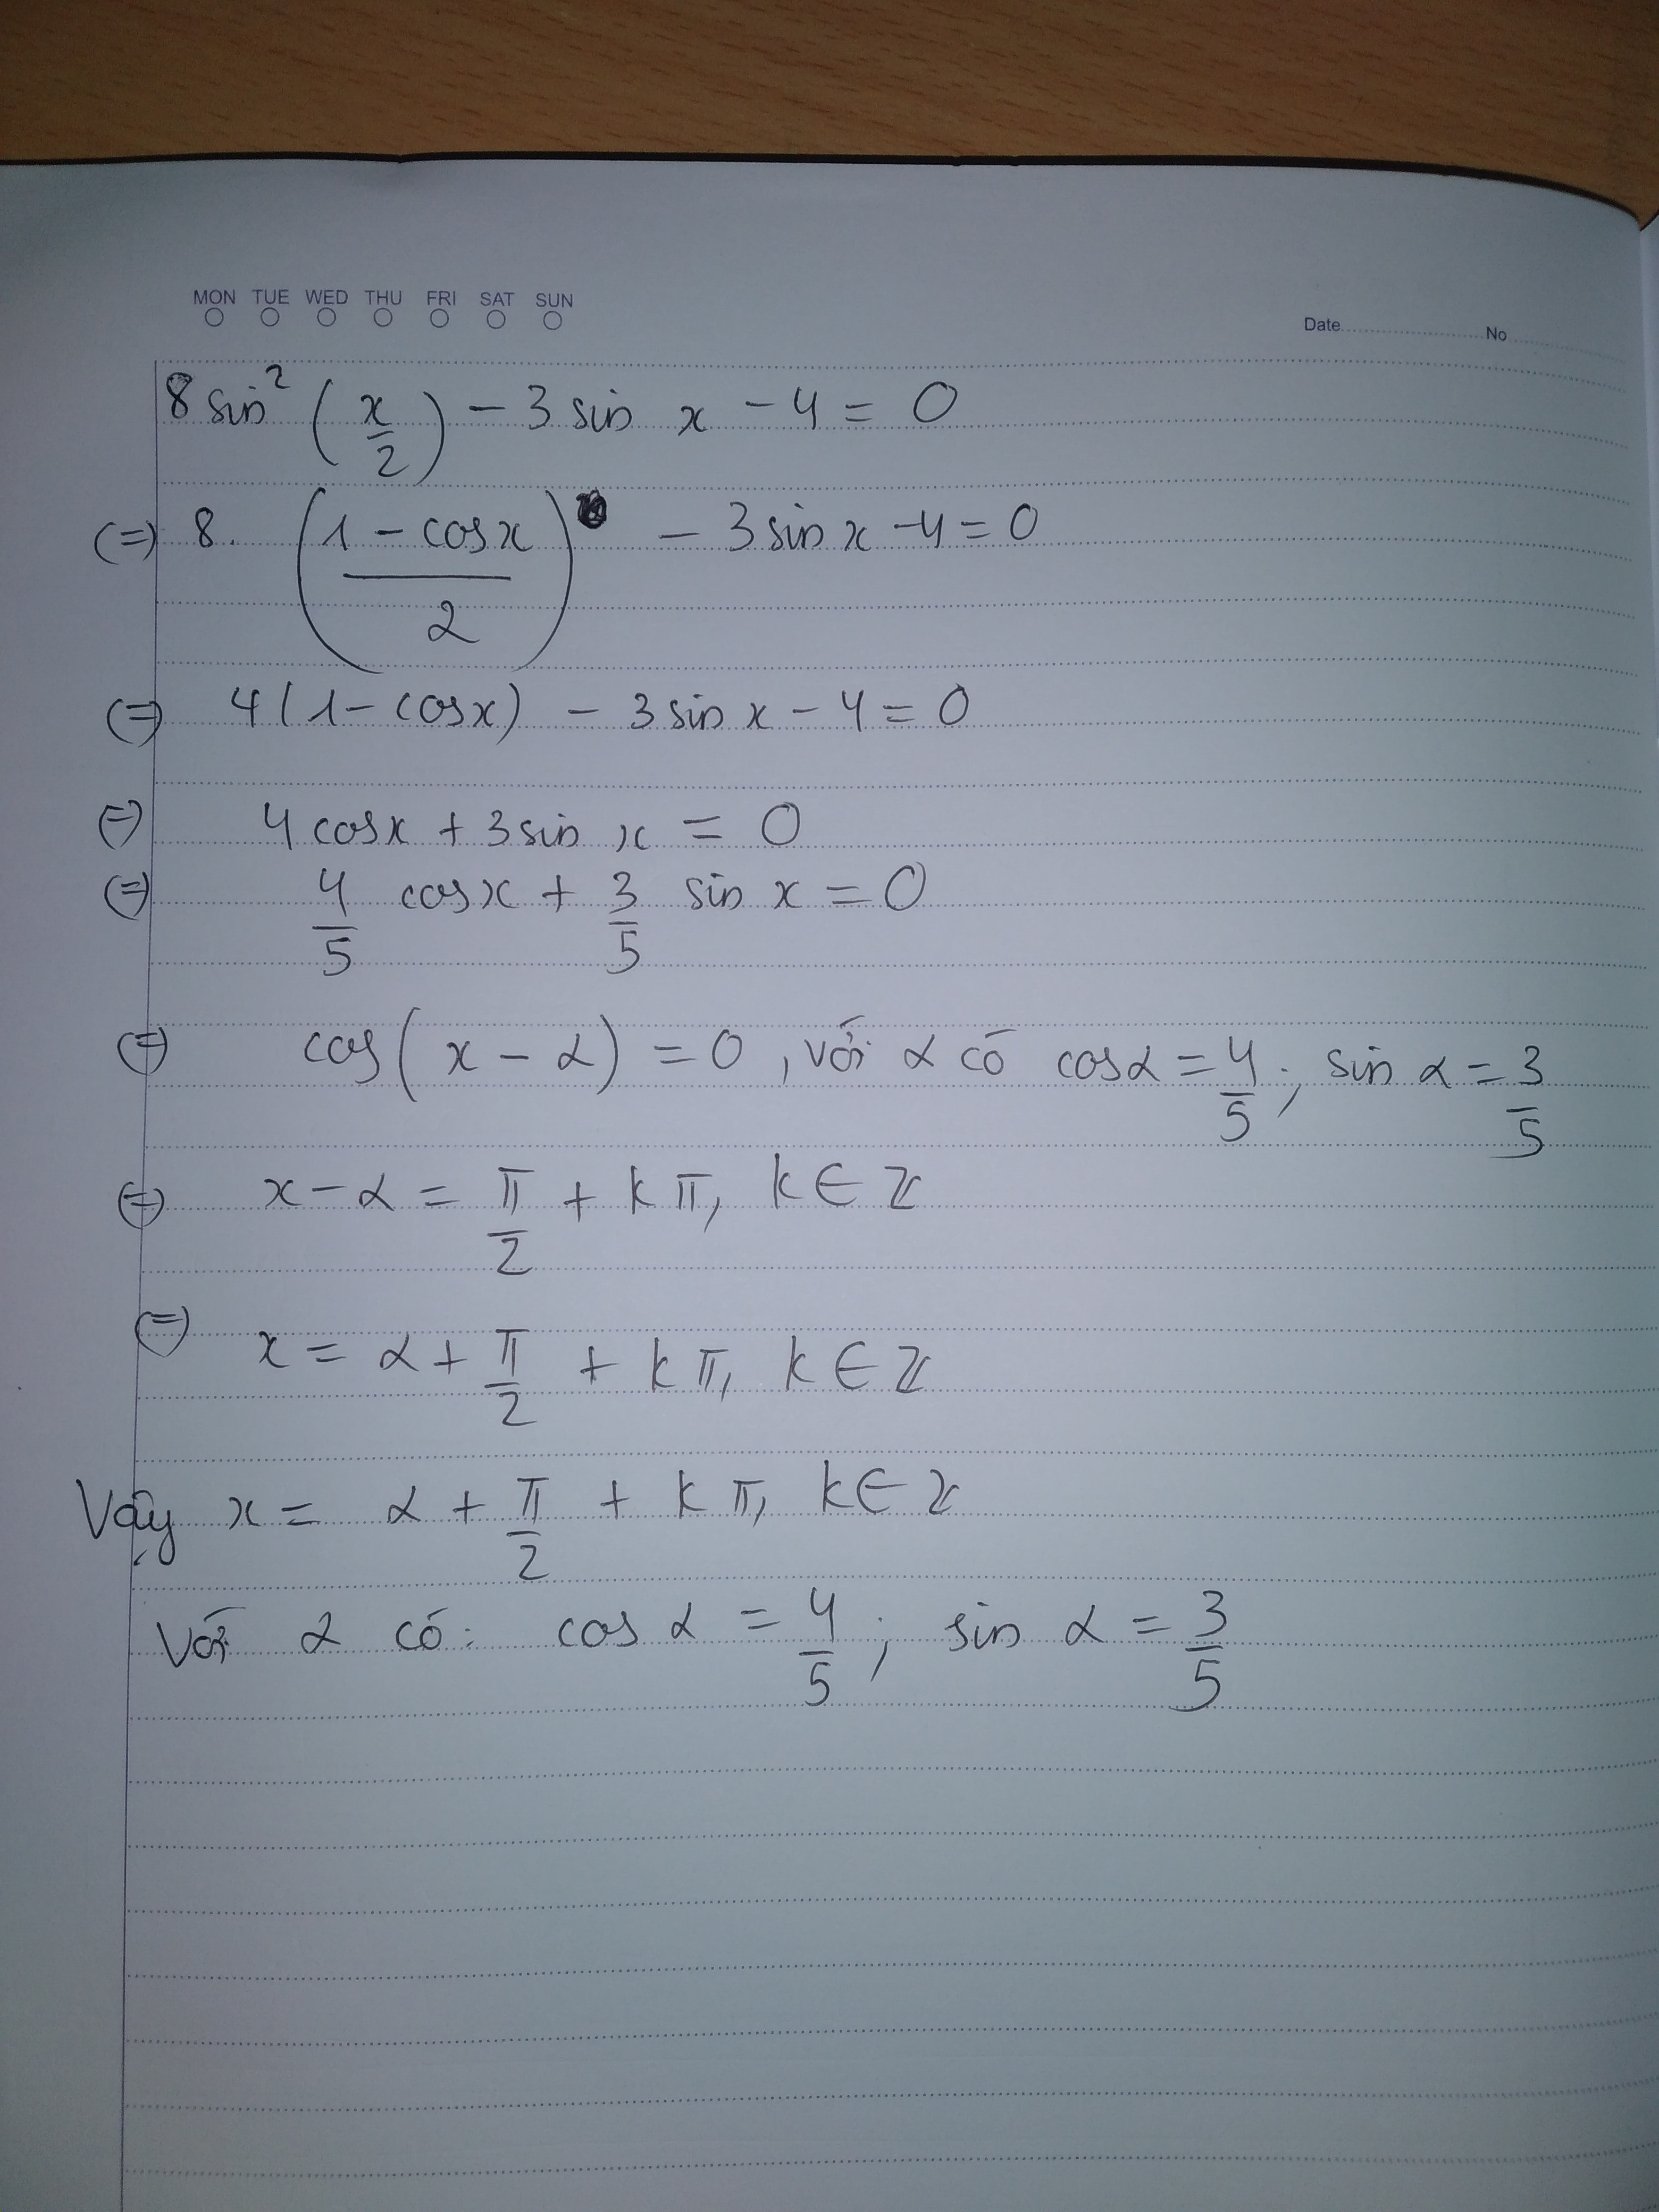 MON TUE WED THU FRI SAT SUN
Date No
8 sin² (x/2) - 3 sin x - 4 = 0
(=) 8. ((1 - cosx)/2) - 3 sin x - 4 = 0
(=) 4(1 - cosx) - 3 sin x - 4 = 0
(=) 4 cosx + 3 sin x = 0
(=) 4/5 cosx + 3/5 sin x = 0
(=) cos(x - α) = 0, với α có cosα = 4/5; sin α = 3/5
(=) x - α = π/2 + kπ, k ∈ Z
(=) x = α + π/2 + kπ, k ∈ Z
Vậy x = α + π/2 + kπ, k ∈ Z
Với α có: cos α = 4/5; sin α = 3/5